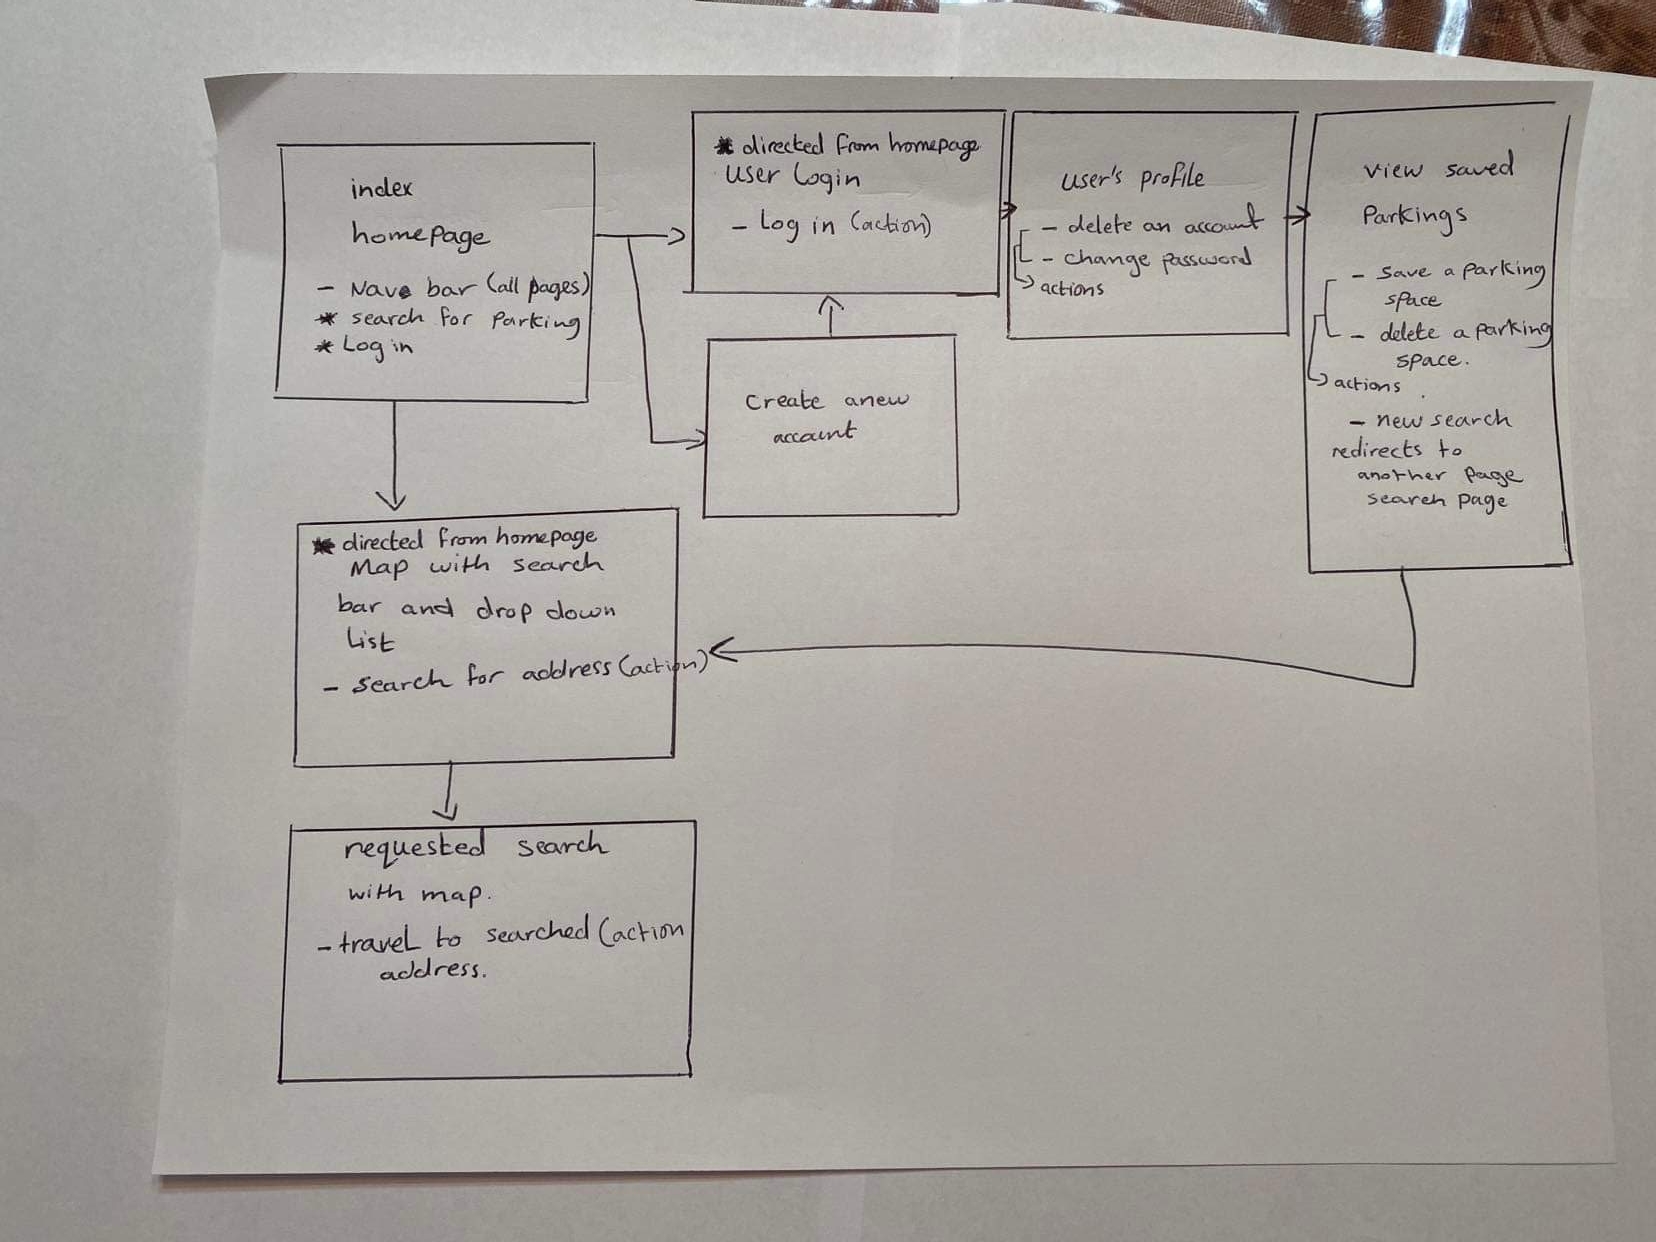 index
homepage
- Nav bar (all pages)
* search for Parking
* Log in
* directed from homepage
User Login
- Log in (action)
user's profile
- delete an account
- change password
actions
view saved
Parkings
- save a parking
space
- delete a parking
space.
actions
- new search
redirects to
another page
search page
Create a new
account
* directed from homepage
Map with search
bar and drop down
List
- search for address (action)
requested search
with map.
- travel to searched (action
address.